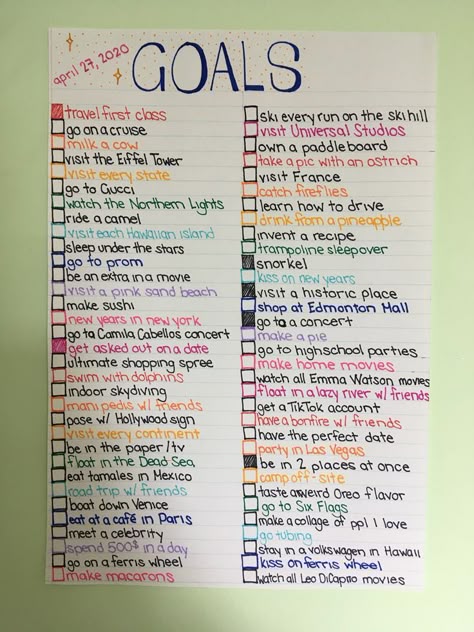 april 27, 2020
GOALS
travel first class
go on a cruise
milk a cow
visit the Eiffel Tower
visit every state
go to Gucci
watch the Northern Lights
ride a camel
visit each Hawaiian island
sleep under the stars
go to prom
be an extra in a movie
visit a pink sand beach
make sushi
new years in new york
go to Camila Cabellos concert
get asked out on a date
ultimate shopping spree
swim with dolphins
indoor skydiving
mani pedis w/ friends
pose w/ Hollywood sign
visit every continent
be in the paper/tv
float in the Dead Sea
eat tamales in Mexico
road trip w/ friends
boat down Venice
eat at a café in Paris
meet a celebrity
spend 500$ in a day
go on a ferris wheel
make macarons
ski every run on the ski hill
visit Universal Studios
own a paddleboard
take a pic with an ostrich
visit France
catch fireflies
learn how to drive
drink from a pineapple
invent a recipe
trampoline sleepover
snorkel
kiss on new years
visit a historic place
shop at Edmonton Hall
go to a concert
make a pie
go to highschool parties
make home movies
watch all Emma Watson movies
float in a lazy river w/ friends
get a TikTok account
have a bonfire w/ friends
have the perfect date
party in Las Vegas
be in 2 places at once
camp off-site
taste a weird Oreo flavor
go to Six Flags
make a collage of ppl I love
go tubing
stay in a volkswagen in Hawaii
kiss on ferris wheel
watch all Leo DiCaprio movies